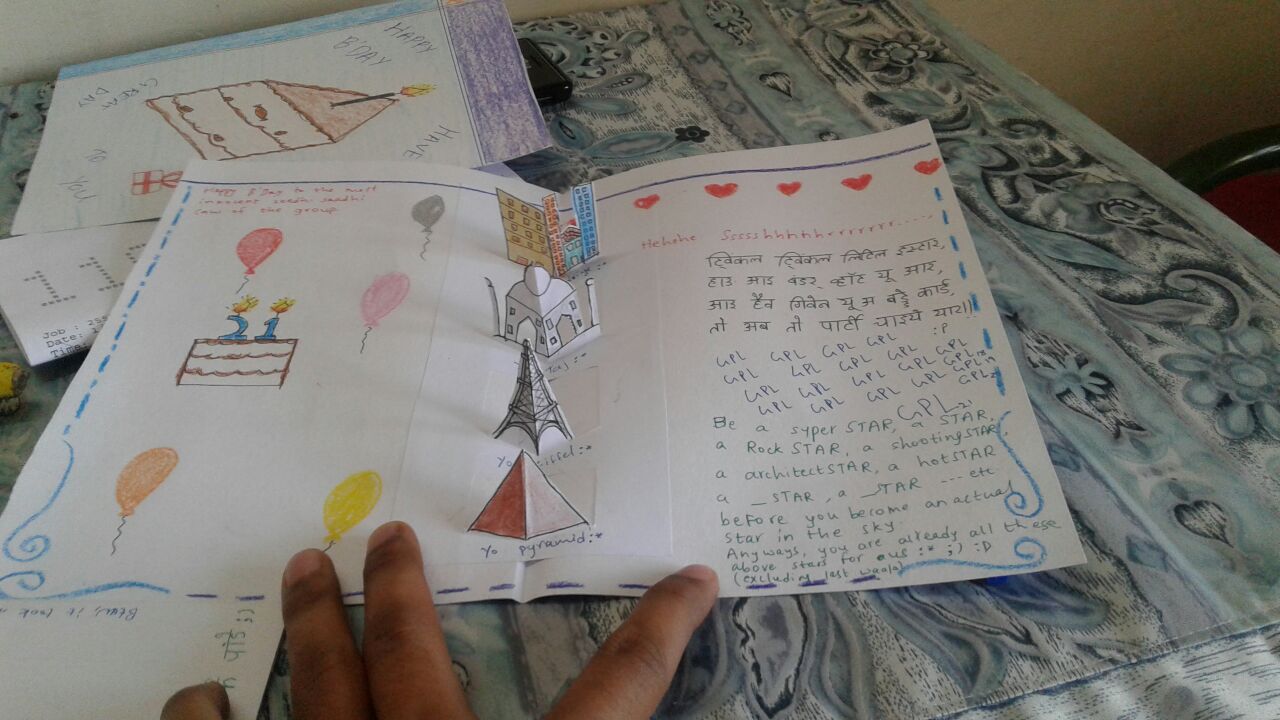 HAPPY
B'DAY
GREAT
DAY
HAVE
TO
YOU
Job : 25
Date:
Time
Happy B'Day to the most
innocent seedhi saadhi
Law of the group
21
Taj :*
Yo Eiffel :*
Yo pyramid :*
Hehehe Sssshhhhhrrrrrrr....
ट्विंकल ट्विंकल लिटिल इस्टार,
हाउ आइ वंडर व्हॉट यू आर,
आइ हैव गिवेन यू अ बड्डे कार्ड,
तो अब तो पार्टी चाइये यार!!
:P
GPL GPL GPL GPL
GPL GPL GPL GPL GPL
GPL GPL GPL GPL GPL
GPL GPL GPL GPL
GPL21
Be a syper STAR, a STAR,
a Rock STAR, a shooting STAR,
a architectSTAR, a hotSTAR
a _STAR, a _STAR ---etc
before you become an actual
star in the sky.
Anyways, you are already all these
above stars for aus :* ;) :D
(excluding last waala)
it took